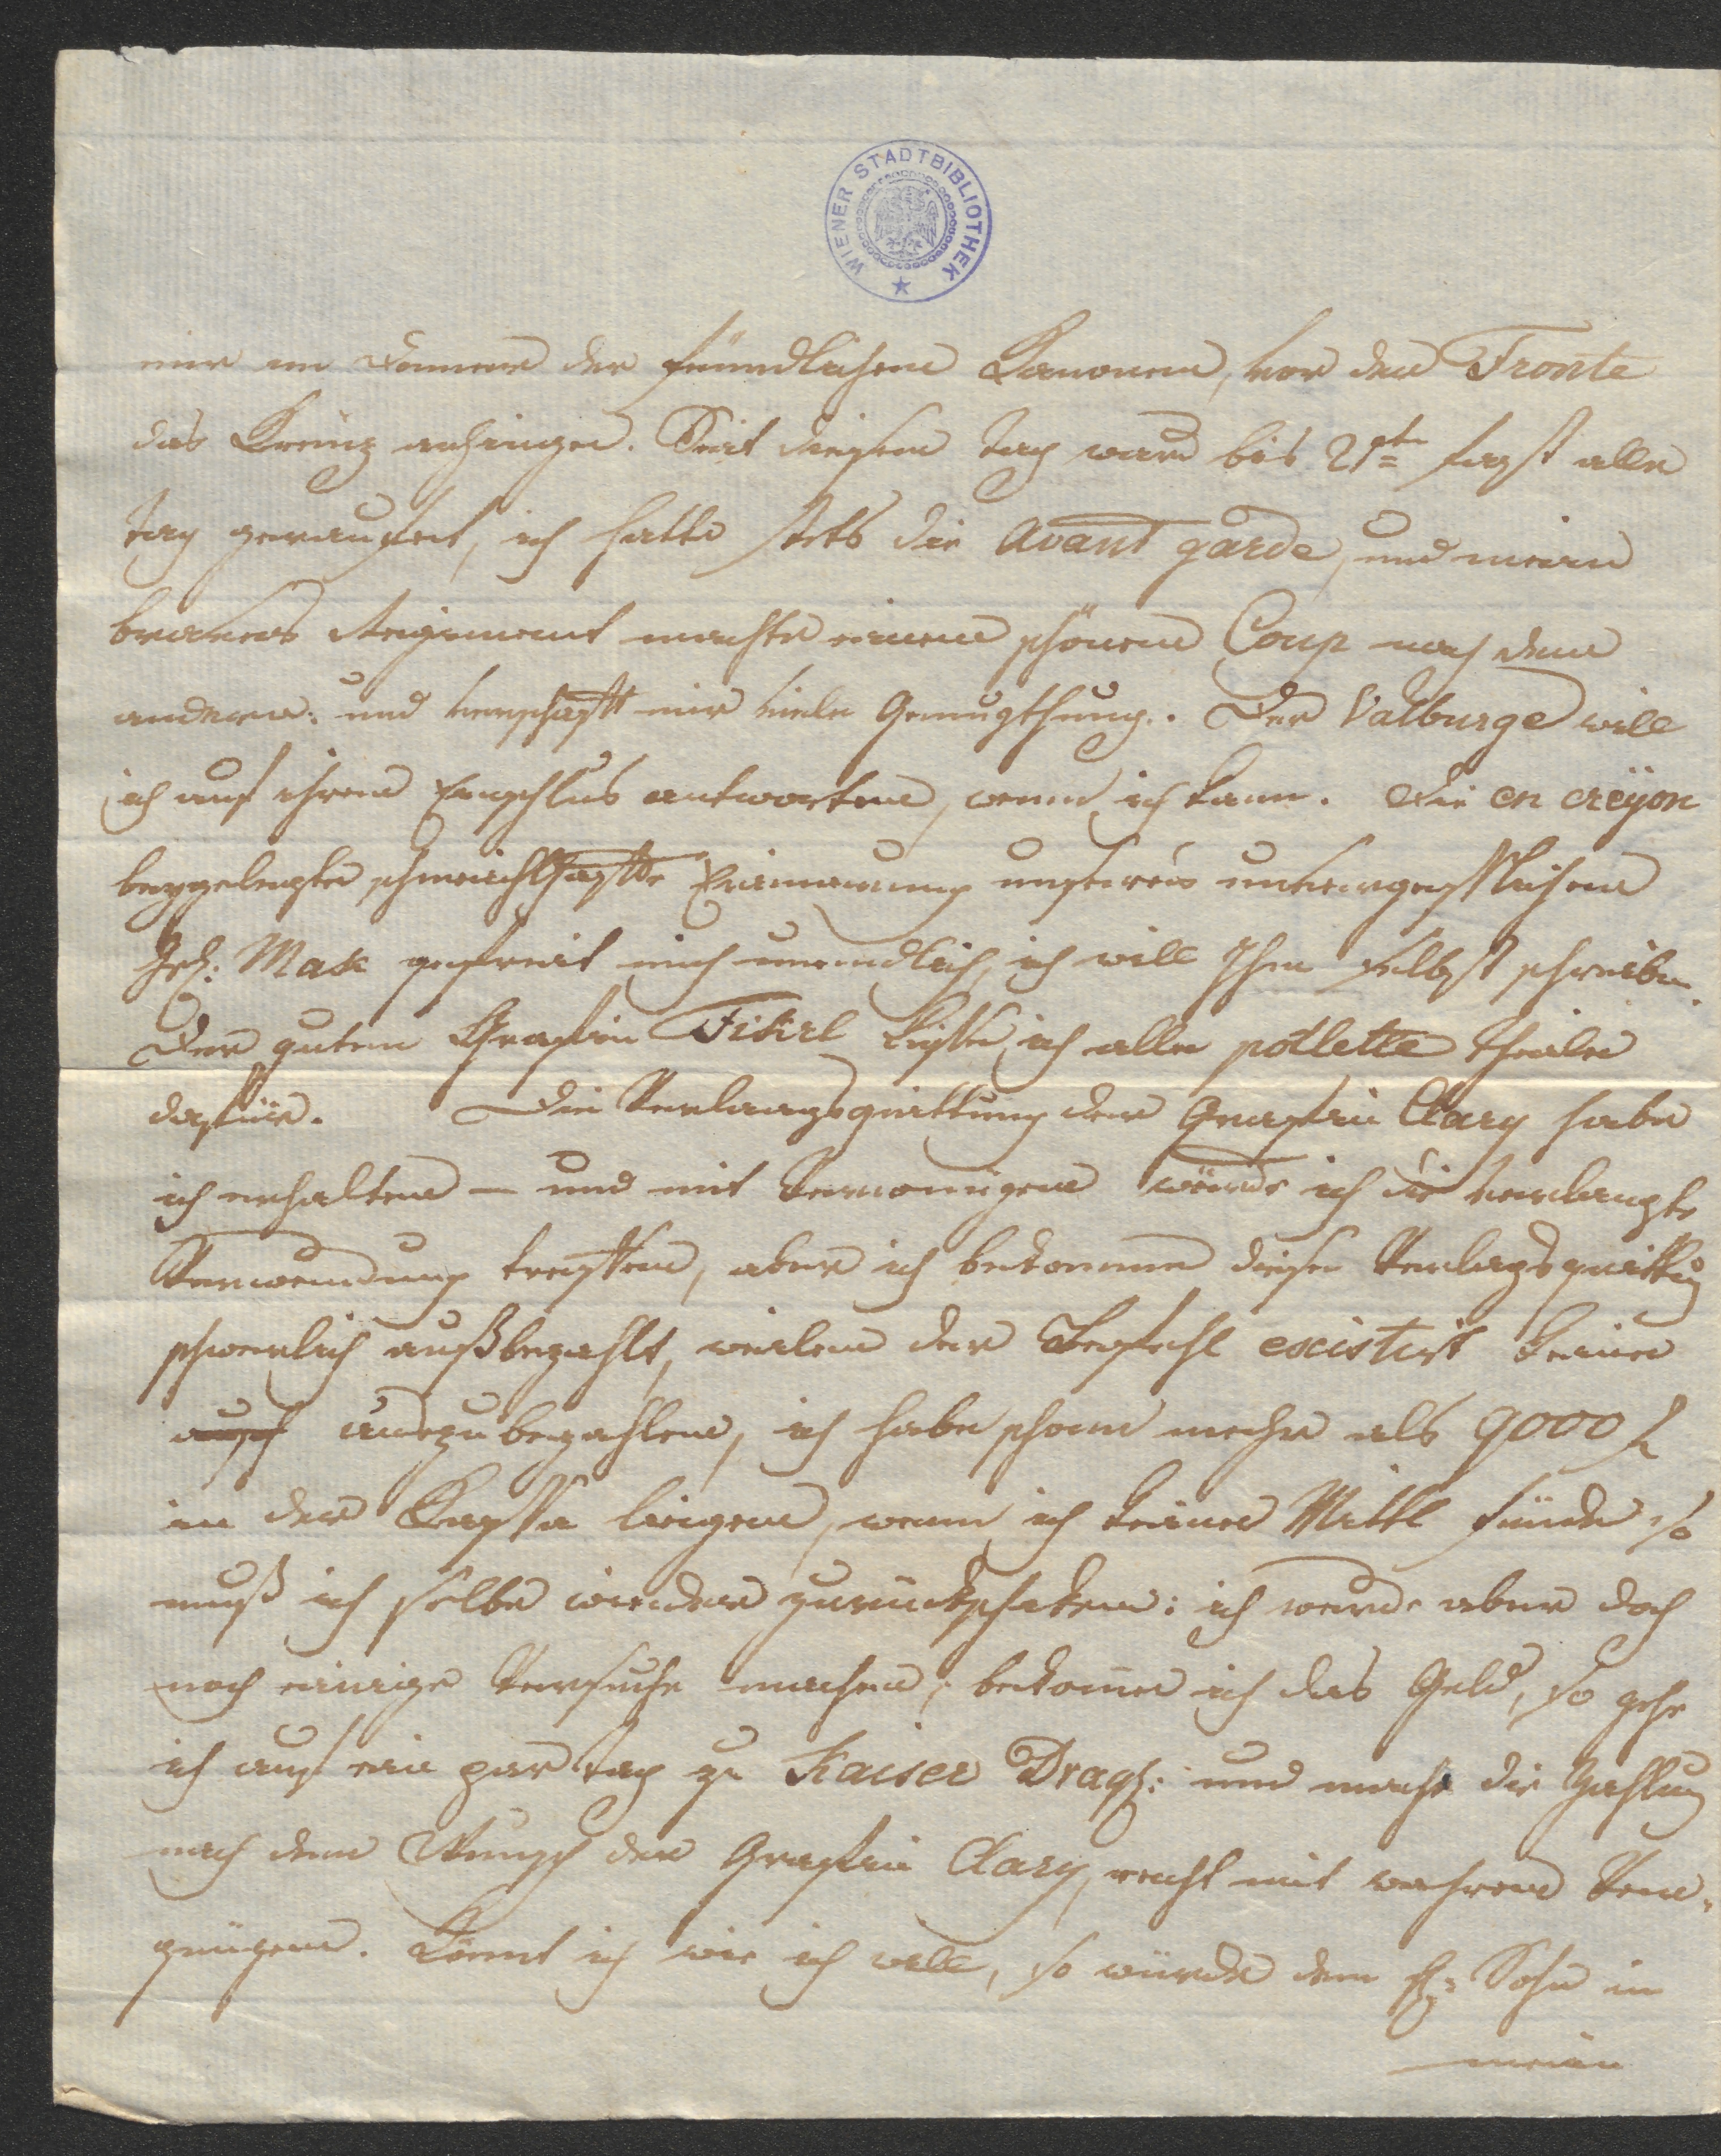 WIENER STADTBIBLIOTHEK
mir im Donner der feindlichen Canonen, vor der Fronte
das Kreuz anhingen. Seit diesem Tag ward bis 21ten fast alle
Tag gerauftet, ich hatte stets die Avant garde, und mein
braves Regiment machte einen schönen Coup nach dem
andern: und verschafft mir viele Genugthung. Der Valburge will
ich auf ihren Einschlus antworten, wenn ich kann. Die en creÿon
beygelegte schmeichlhafte Erinnerung unseres unvergesslichen
Mack gefreut mich unendlich, ich will Ihm selbst schreiben.
Der guten Grafin Fikrl küsse ich alle potlette theile
dafür. Die Verlaagsquittung der Grafin Clary habe
ich erhalten – und mit Vergnügen würde ich die verlangte
Verwendung treffen, aber ich bekomme diese Verlagsquittung
schwerlich außbezahlt, weilen der Befehl existirt keine
auszubezahlen, ich habe schonn mehr als 9000 f
in der Cassa liegen, wenn ich keine Mittl finde so
muß ich selbe wieder zurückschiken: ich werde aber doch
noch einige Versuche machen; bekomme ich das Geld, so gehe
ich auf ein par Tag zu Kaiser Drag: und mache die Zahlung
nach dem Wunsch der Grafin Clary, recht mit wahren Ver-
gnügen. Könnt ich wie ich will, so würde dem H: Sohn in
mein